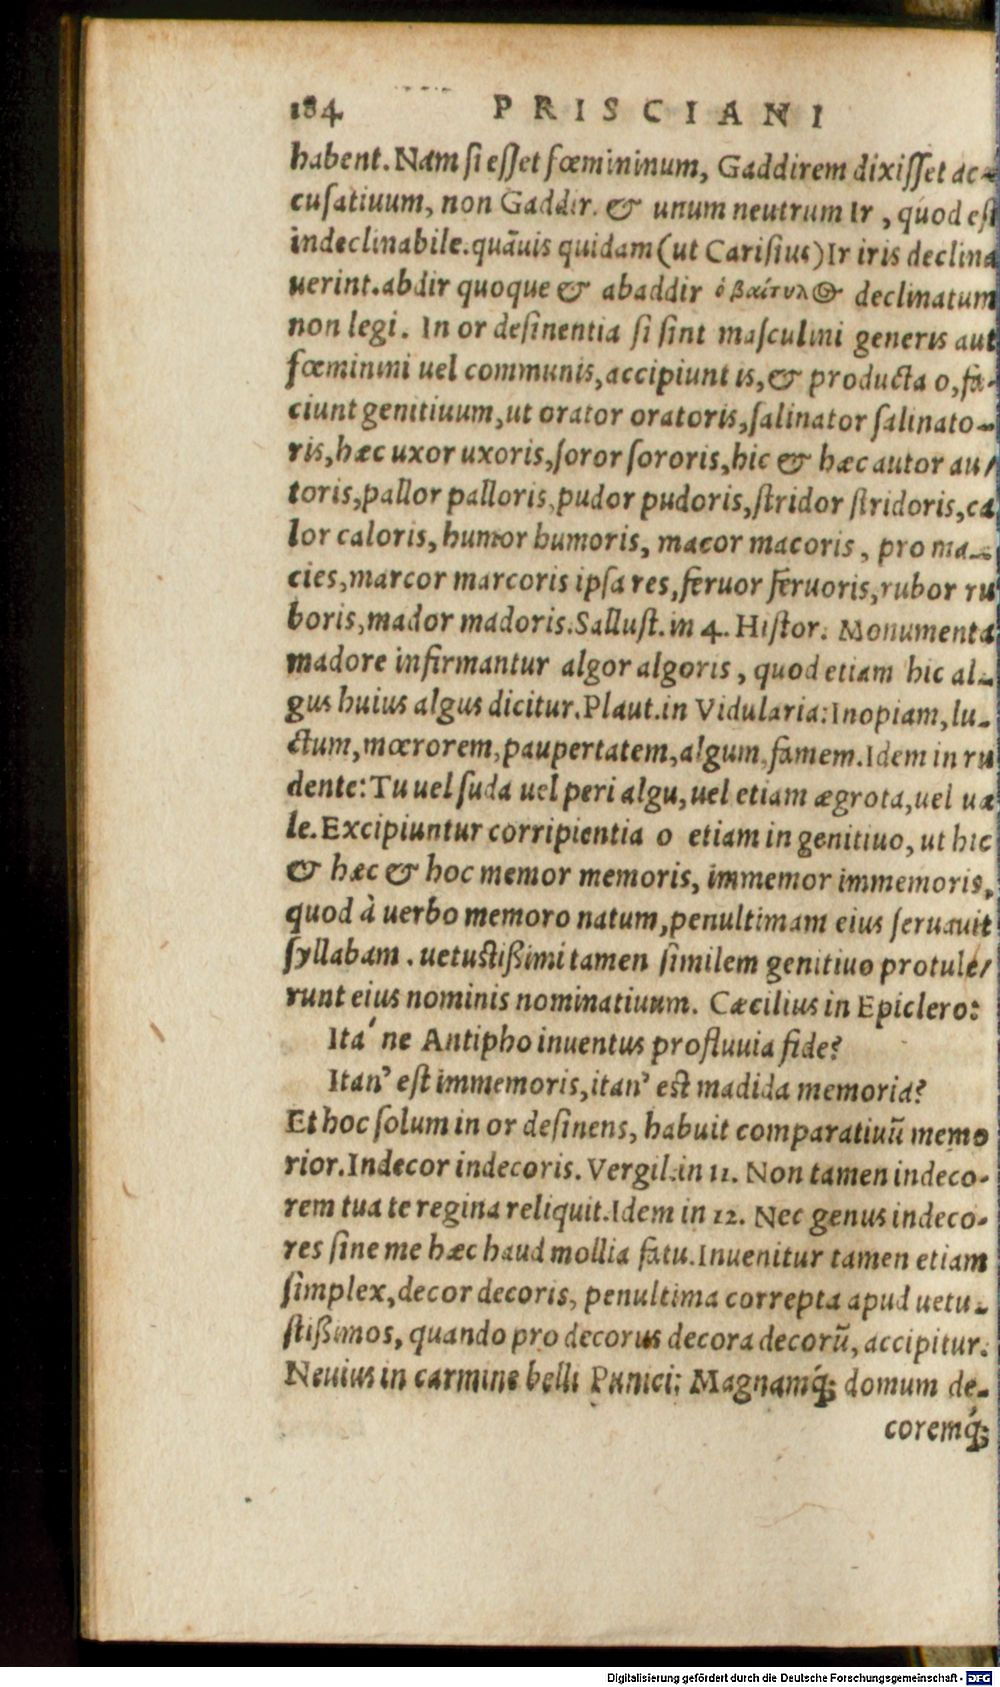 184 PRISCIANI
habent. Nam si esset fœmininum, Gaddirem dixisset ac-
cusatiuum, non Gaddir. & unum neutrum Ir, quod est
indeclinabile. quāuis quidam (ut Carisius) Ir iris declina
uerint. abdir quoque & abaddir ὁ βαίτυλος declinatum
non legi. In or desinentia si sint masculini generis aut
fœminini uel communis, accipiunt is, & producta o, fa-
ciunt genitiuum, ut orator oratoris, salinator salinato-
ris, hæc uxor uxoris, soror sororis, hic & hæc autor au/
toris, pallor palloris, pudor pudoris, stridor stridoris, ca
lor caloris, humor humoris, macor macoris, pro ma-
cies, marcor marcoris ipsa res, feruor feruoris, rubor ru
boris, mador madoris. Sallust. in 4. Histor. Monumenta
madore infirmantur algor algoris, quod etiam hic al-
gus huius algus dicitur. Plaut. in Vidularia: Inopiam, lu-
ctum, mœrorem, paupertatem, algum, famem. Idem in ru
dente: Tu uel suda uel peri algu, uel etiam ægrota, uel ua
le. Excipiuntur corripientia o etiam in genitiuo, ut hic
& hæc & hoc memor memoris, immemor immemoris,
quod à uerbo memoro natum, penultimam eius seruauit
syllabam. uetustißimi tamen similem genitiuo protule/
runt eius nominis nominatiuum. Cæcilius in Epiclero:
Ita´ ne Antipho inuentus profluuia fide?
Itan' est immemoris, itan' est madida memoria?
Et hoc solum in or desinens, habuit comparatiuū memo
rior. Indecor indecoris. Vergil. in 11. Non tamen indeco-
rem tua te regina reliquit. Idem in 12. Nec genus indeco-
res sine me hæc haud mollia fatu. Inuenitur tamen etiam
simplex, decor decoris, penultima correpta apud uetu-
stißimos, quando pro decorus decora decorū, accipitur.
Neuius in carmine belli Punici: Magnamq́; domum de-
coremq́;
Digitalisierung gefördert durch die Deutsche Forschungsgemeinschaft - DFG